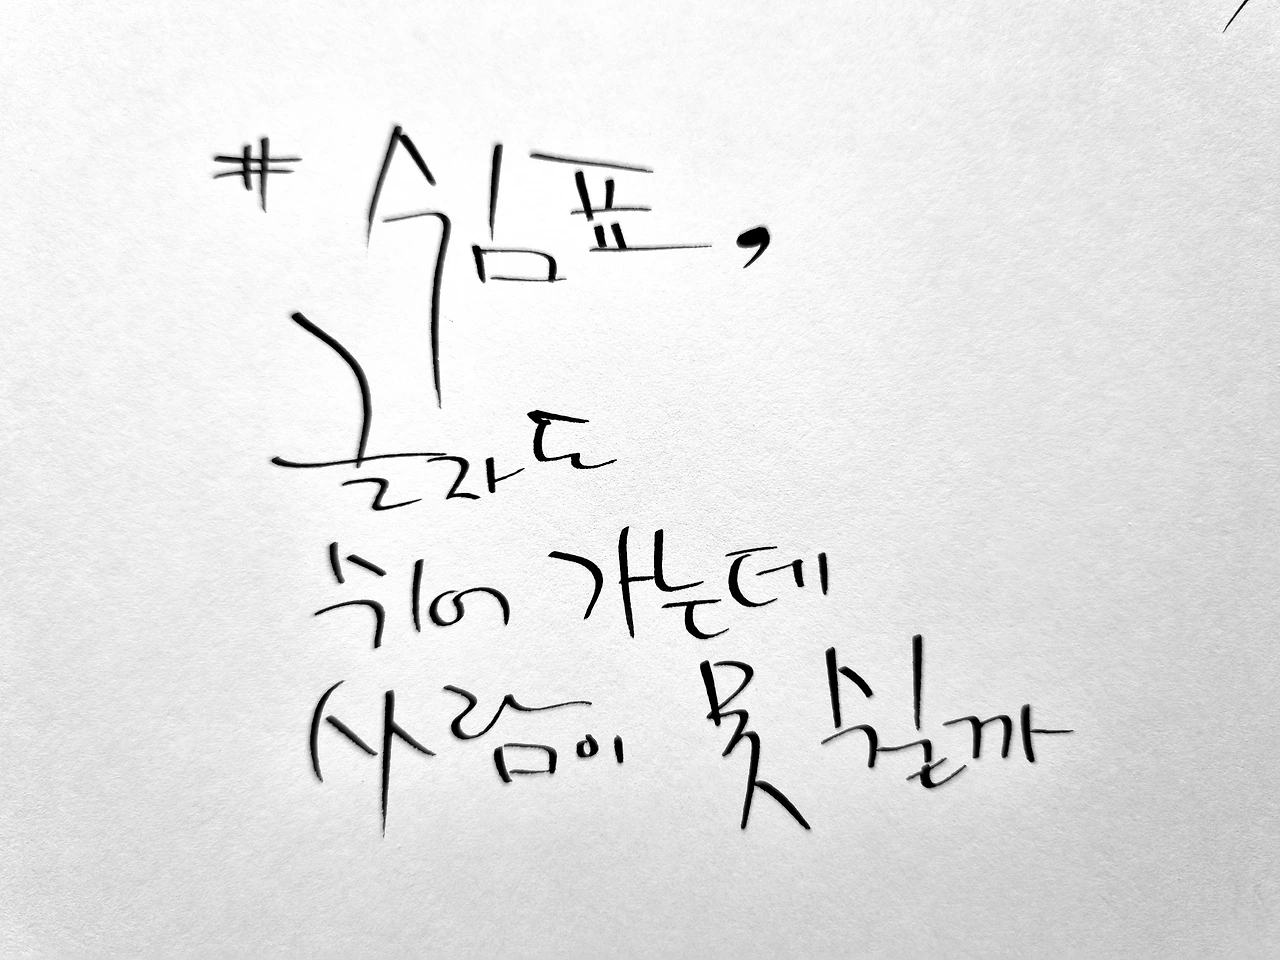 # 쉼표,
글라도
쉬어 가는데
사람이 못 쉴까